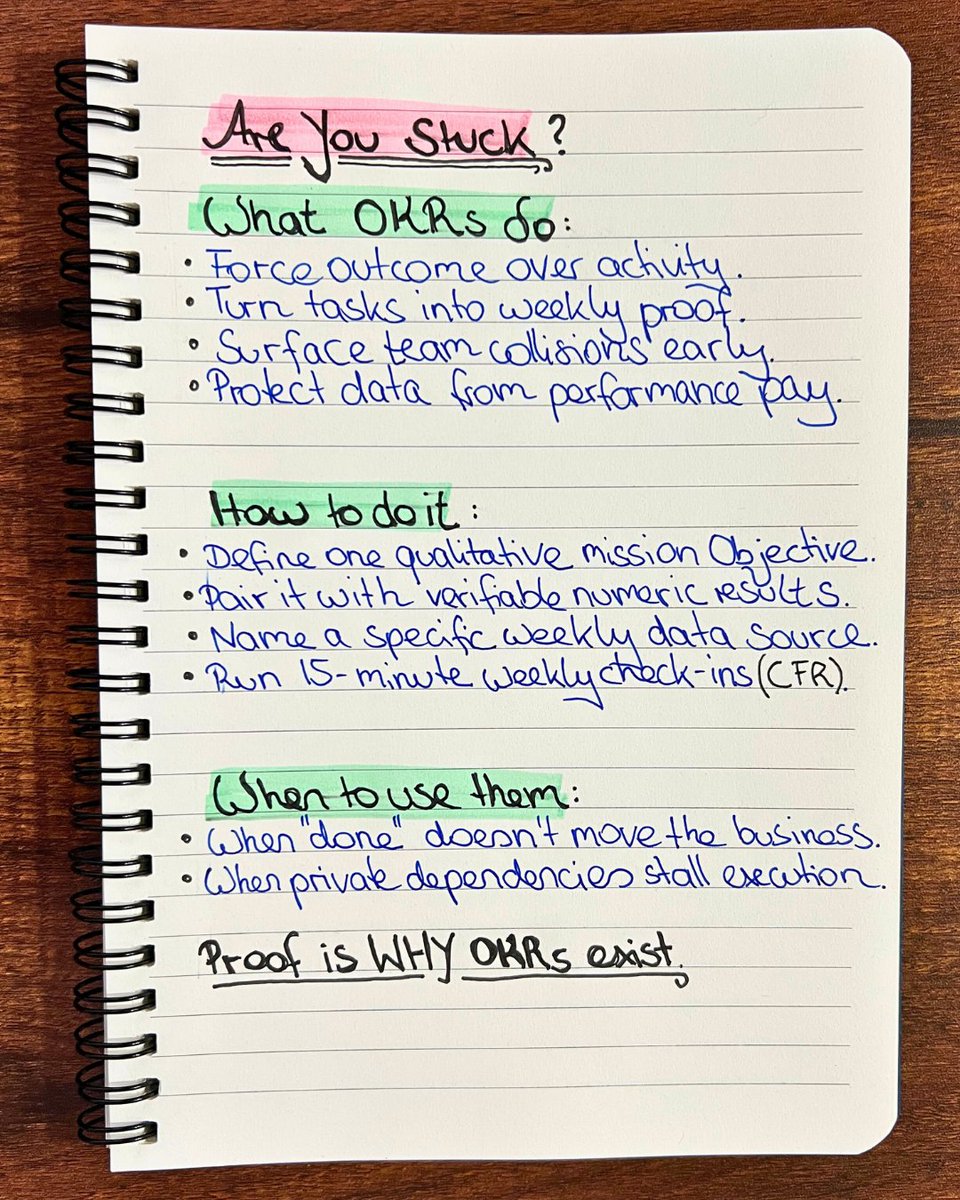 Are You Stuck?
What OKRs do:
• Force outcome over activity.
• Turn tasks into weekly proof.
• Surface team collisions early.
• Protect data from performance pay.
How to do it:
• Define one qualitative mission Objective.
• Pair it with verifiable numeric results.
• Name a specific weekly data source.
• Run 15-minute weekly check-ins (CFR).
When to use them:
• When "done" doesn't move the business.
• When private dependencies stall execution.
Proof is WHY OKRs exist.